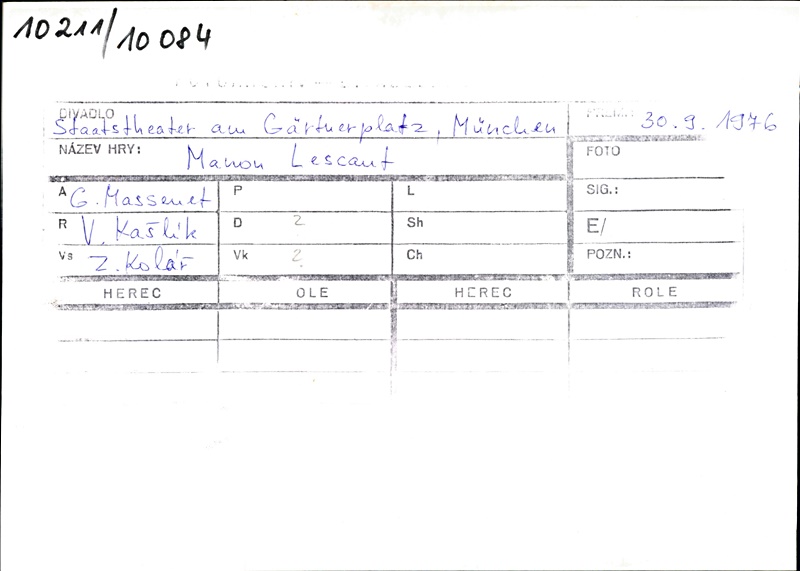 10211/10084
DIVADLO
Staatstheater am Gärtnerplatz, München
30.9. 1976
NÁZEV HRY: Manon Lescaut
FOTO
A G. Massenet P L SIG.:
R V. Kašlík D 2 Sh E/
Vs Z. Kolář Vk 2 Ch POZN.:
HEREC OLE HEREC ROLE